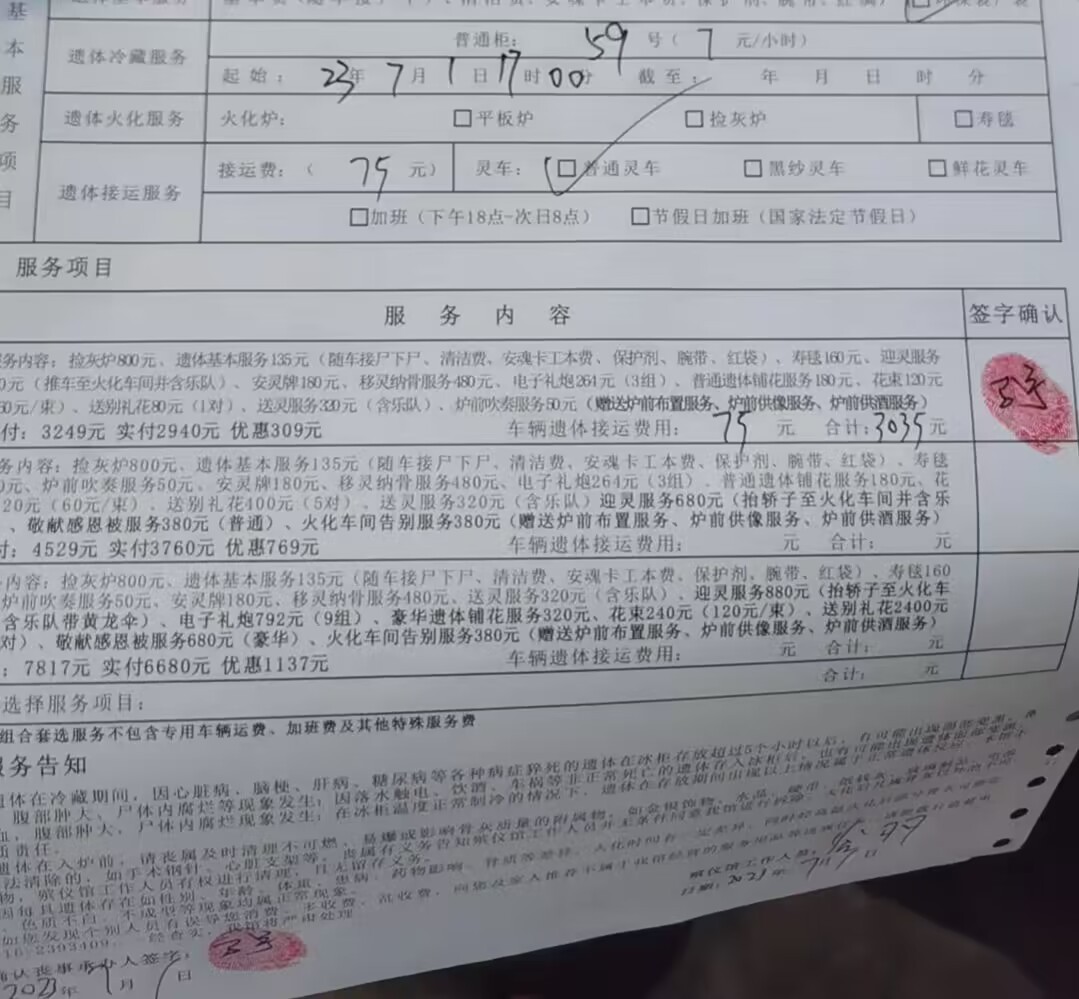 基
本
服
务
项
目
遗体冷藏服务
普通柜： 59 号（ 7 元/小时）
起始： 23年 7月 1日 17时 00分 截至： 年 月 日 时 分
遗体火化服务
火化炉： □平板炉 □捡灰炉 □寿毯
遗体接运服务
接运费：（ 75 元） 灵车： □普通灵车 □黑纱灵车 □鲜花灵车
□加班（下午18点-次日8点） □节假日加班（国家法定节假日）
服务项目
服 务 内 容 签字确认
务内容：捡灰炉800元、遗体基本服务135元（随车接尸下尸、清洁费、安魂卡工本费、保护剂、腕带、红袋）、寿毯160元、迎灵服务
0元（推车至火化车间并含乐队）、安灵牌180元、移灵纳骨服务480元、电子礼炮264元（3组）、普通遗体铺花服务180元、花束120元
60元/束）、送别礼花80元（1对）、送灵服务320元（含乐队）、炉前吹奏服务50元（赠送炉前布置服务、炉前供像服务、炉前供酒服务）
付：3249元 实付2940元 优惠309元 车辆遗体接运费用： 75 元 合计：3035元
务内容：捡灰炉800元、遗体基本服务135元（随车接尸下尸、清洁费、安魂卡工本费、保护剂、腕带、红袋）、寿毯
0元、炉前吹奏服务50元、安灵牌180元、移灵纳骨服务480元、电子礼炮264元（3组）、普通遗体铺花服务180元、花
20元（60元/束）、送别礼花400元（5对）、送灵服务320元（含乐队）迎灵服务680元（抬轿子至火化车间并含乐
、敬献感恩被服务380元（普通）、火化车间告别服务380元（赠送炉前布置服务、炉前供像服务、炉前供酒服务）
付：4529元 实付3760元 优惠769元 车辆遗体接运费用： 元 合计： 元
内容：捡灰炉800元、遗体基本服务135元（随车接尸下尸、清洁费、安魂卡工本费、保护剂、腕带、红袋）、寿毯160
炉前吹奏服务50元、安灵牌180元、移灵纳骨服务480元、送灵服务320元（含乐队）、迎灵服务880元（抬轿子至火化车
含乐队带黄龙伞）、电子礼炮792元（9组）、豪华遗体铺花服务320元、花束240元（120元/束）、送别礼花2400元
对）、敬献感恩被服务680元（豪华）、火化车间告别服务380元（赠送炉前布置服务、炉前供像服务、炉前供酒服务）
：7817元 实付6680元 优惠1137元 车辆遗体接运费用： 元 合计： 元
选择服务项目： 合计： 元
组合套选服务不包含专用车辆运费、加班费及其他特殊服务费
服务告知
遗体在冷藏期间，因心脏病、脑梗、肝病、糖尿病等各种病症猝死的遗体在冰柜存放超过5个小时以后，有可能出现面部变黑、
腹部肿大、尸体内腐烂等现象发生；因落水触电、饮酒、车祸等非正常死亡的遗体存入冰柜后，也有可能出现遗体面部变黑、
血，腹部肿大、尸体内腐烂现象发生；在冰柜温度正常制冷的情况下，遗体在存放期间出现以上情况属于正常遗体反应，
质责任。
遗体在入炉前，请丧属及时清理不可燃、易爆或影响骨灰质量的附属物，如金银饰物、水晶、硬币、
法清除的，如手术钢针、心脏支架等，丧属有义务告知殡仪馆工作人员
物，殡仪馆工作人员有权进行清理，且无留存义务。
因每具遗体存在如性别、年龄、体重、患病、药物影响、骨质等差异，火化时间有一定差异，
色质不白、不成型等现象均属正常现象。
如您发现个别人员有误导您消费、多收费、乱收费，向您及家人推荐不属于我馆经营的服务用品
16-2393409，一经查实，我馆将严肃处理
殡仪馆工作人员：
日期：2023年 7月 1日
确认丧事承办人签字：
2023年 7月 1日